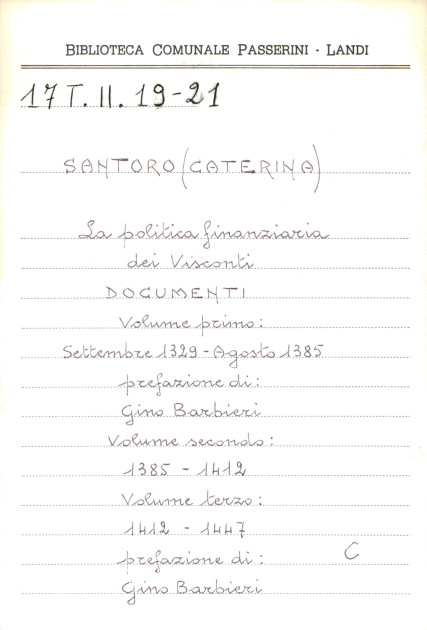 BIBLIOTECA COMUNALE PASSERINI - LANDI
17 T. II. 19-21
SANTORO (CATERINA)
La politica finanziaria
dei Visconti
DOCUMENTI
Volume primo:
Settembre 1329 - Agosto 1385
prefazione di:
Gino Barbieri
Volume secondo:
1385 - 1412
Volume terzo:
1412 - 1447
prefazione di:
C
Gino Barbieri